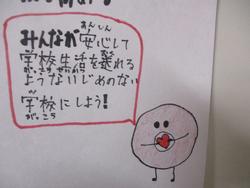 みんなが安心して
学校生活を送れる
ようないじめのない
学校にしよう!